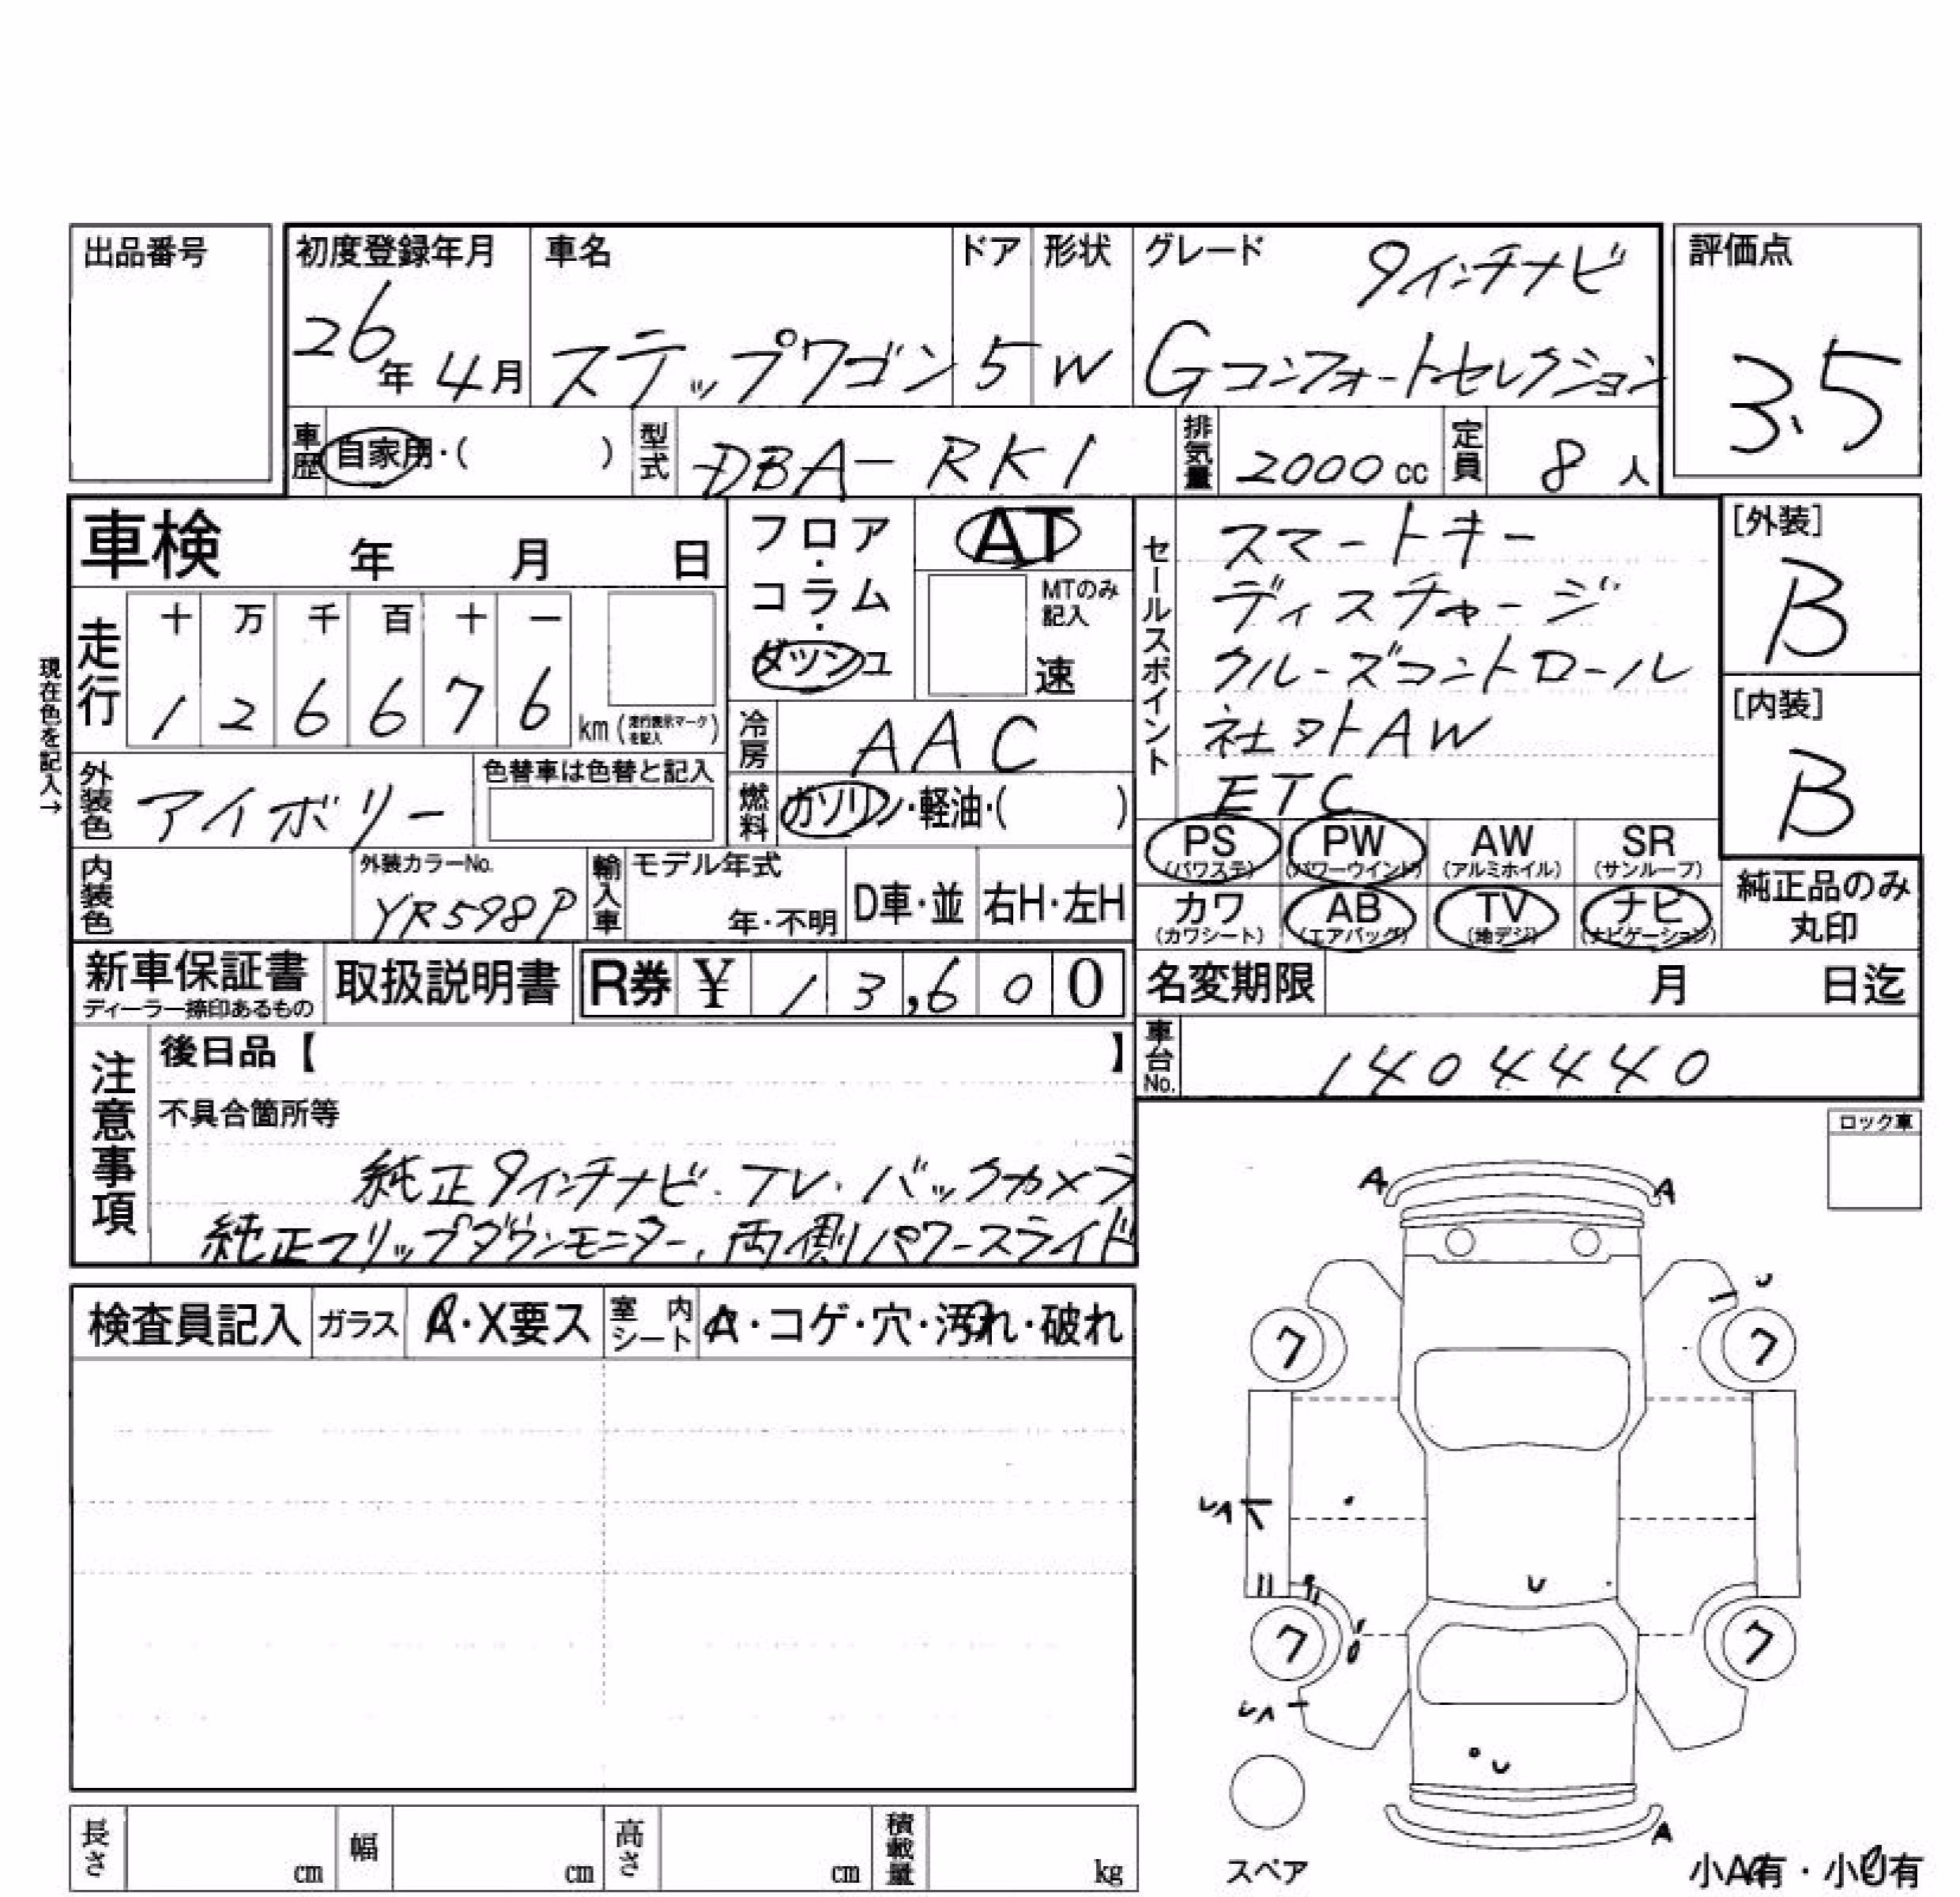 出品番号
初度登録年月
26年 4月
車名
ステップワゴン
ドア
5
形状
W
グレード
9インチナビ
Gコンフォートセレクション
評価点
3.5
車歴
自家用・( )
型式
DBA-RK1
排気量
2000 cc
定員
8 人
車検 年 月 日
フロア・コラム・ダッシュ
AT
MTのみ記入
速
走行
十 万 千 百 十 一
1 2 6 6 7 6 km (走行表示マークを記入)
現在色を記入→
冷房
AAC
外装色
アイボリー
色替車は色替と記入
燃料
ガソリン・軽油・( )
内装色
外装カラーNo.
YR598P
輸入車
モデル年式
年・不明
D車・並
右H・左H
セールスポイント
スマートキー
ディスチャージ
クルーズコントロール
社外AW
ETC
[外装]
B
[内装]
B
PS (パワステ)
PW (パワーウインド)
AW (アルミホイル)
SR (サンルーフ)
カワ (カワシート)
AB (エアバッグ)
TV (地デジ)
ナビ (ナビゲーション)
純正品のみ丸印
新車保証書
ディーラー捺印あるもの
取扱説明書
R券 ¥ 13,600
名変期限 月 日迄
車台No.
1404440
注意事項
後日品【 】
不具合箇所等
純正9インチナビ.TV.バックカメラ
純正フリップダウンモニター、両側パワースライド
ロック車
検査員記入
ガラス
A・X要ス
室内シート
A・コゲ・穴・汚れ・破れ
A
A
ク
ク
ク
ク
A
スペア
小A有・小U有
長さ
cm
幅
cm
高さ
cm
積載量
kg